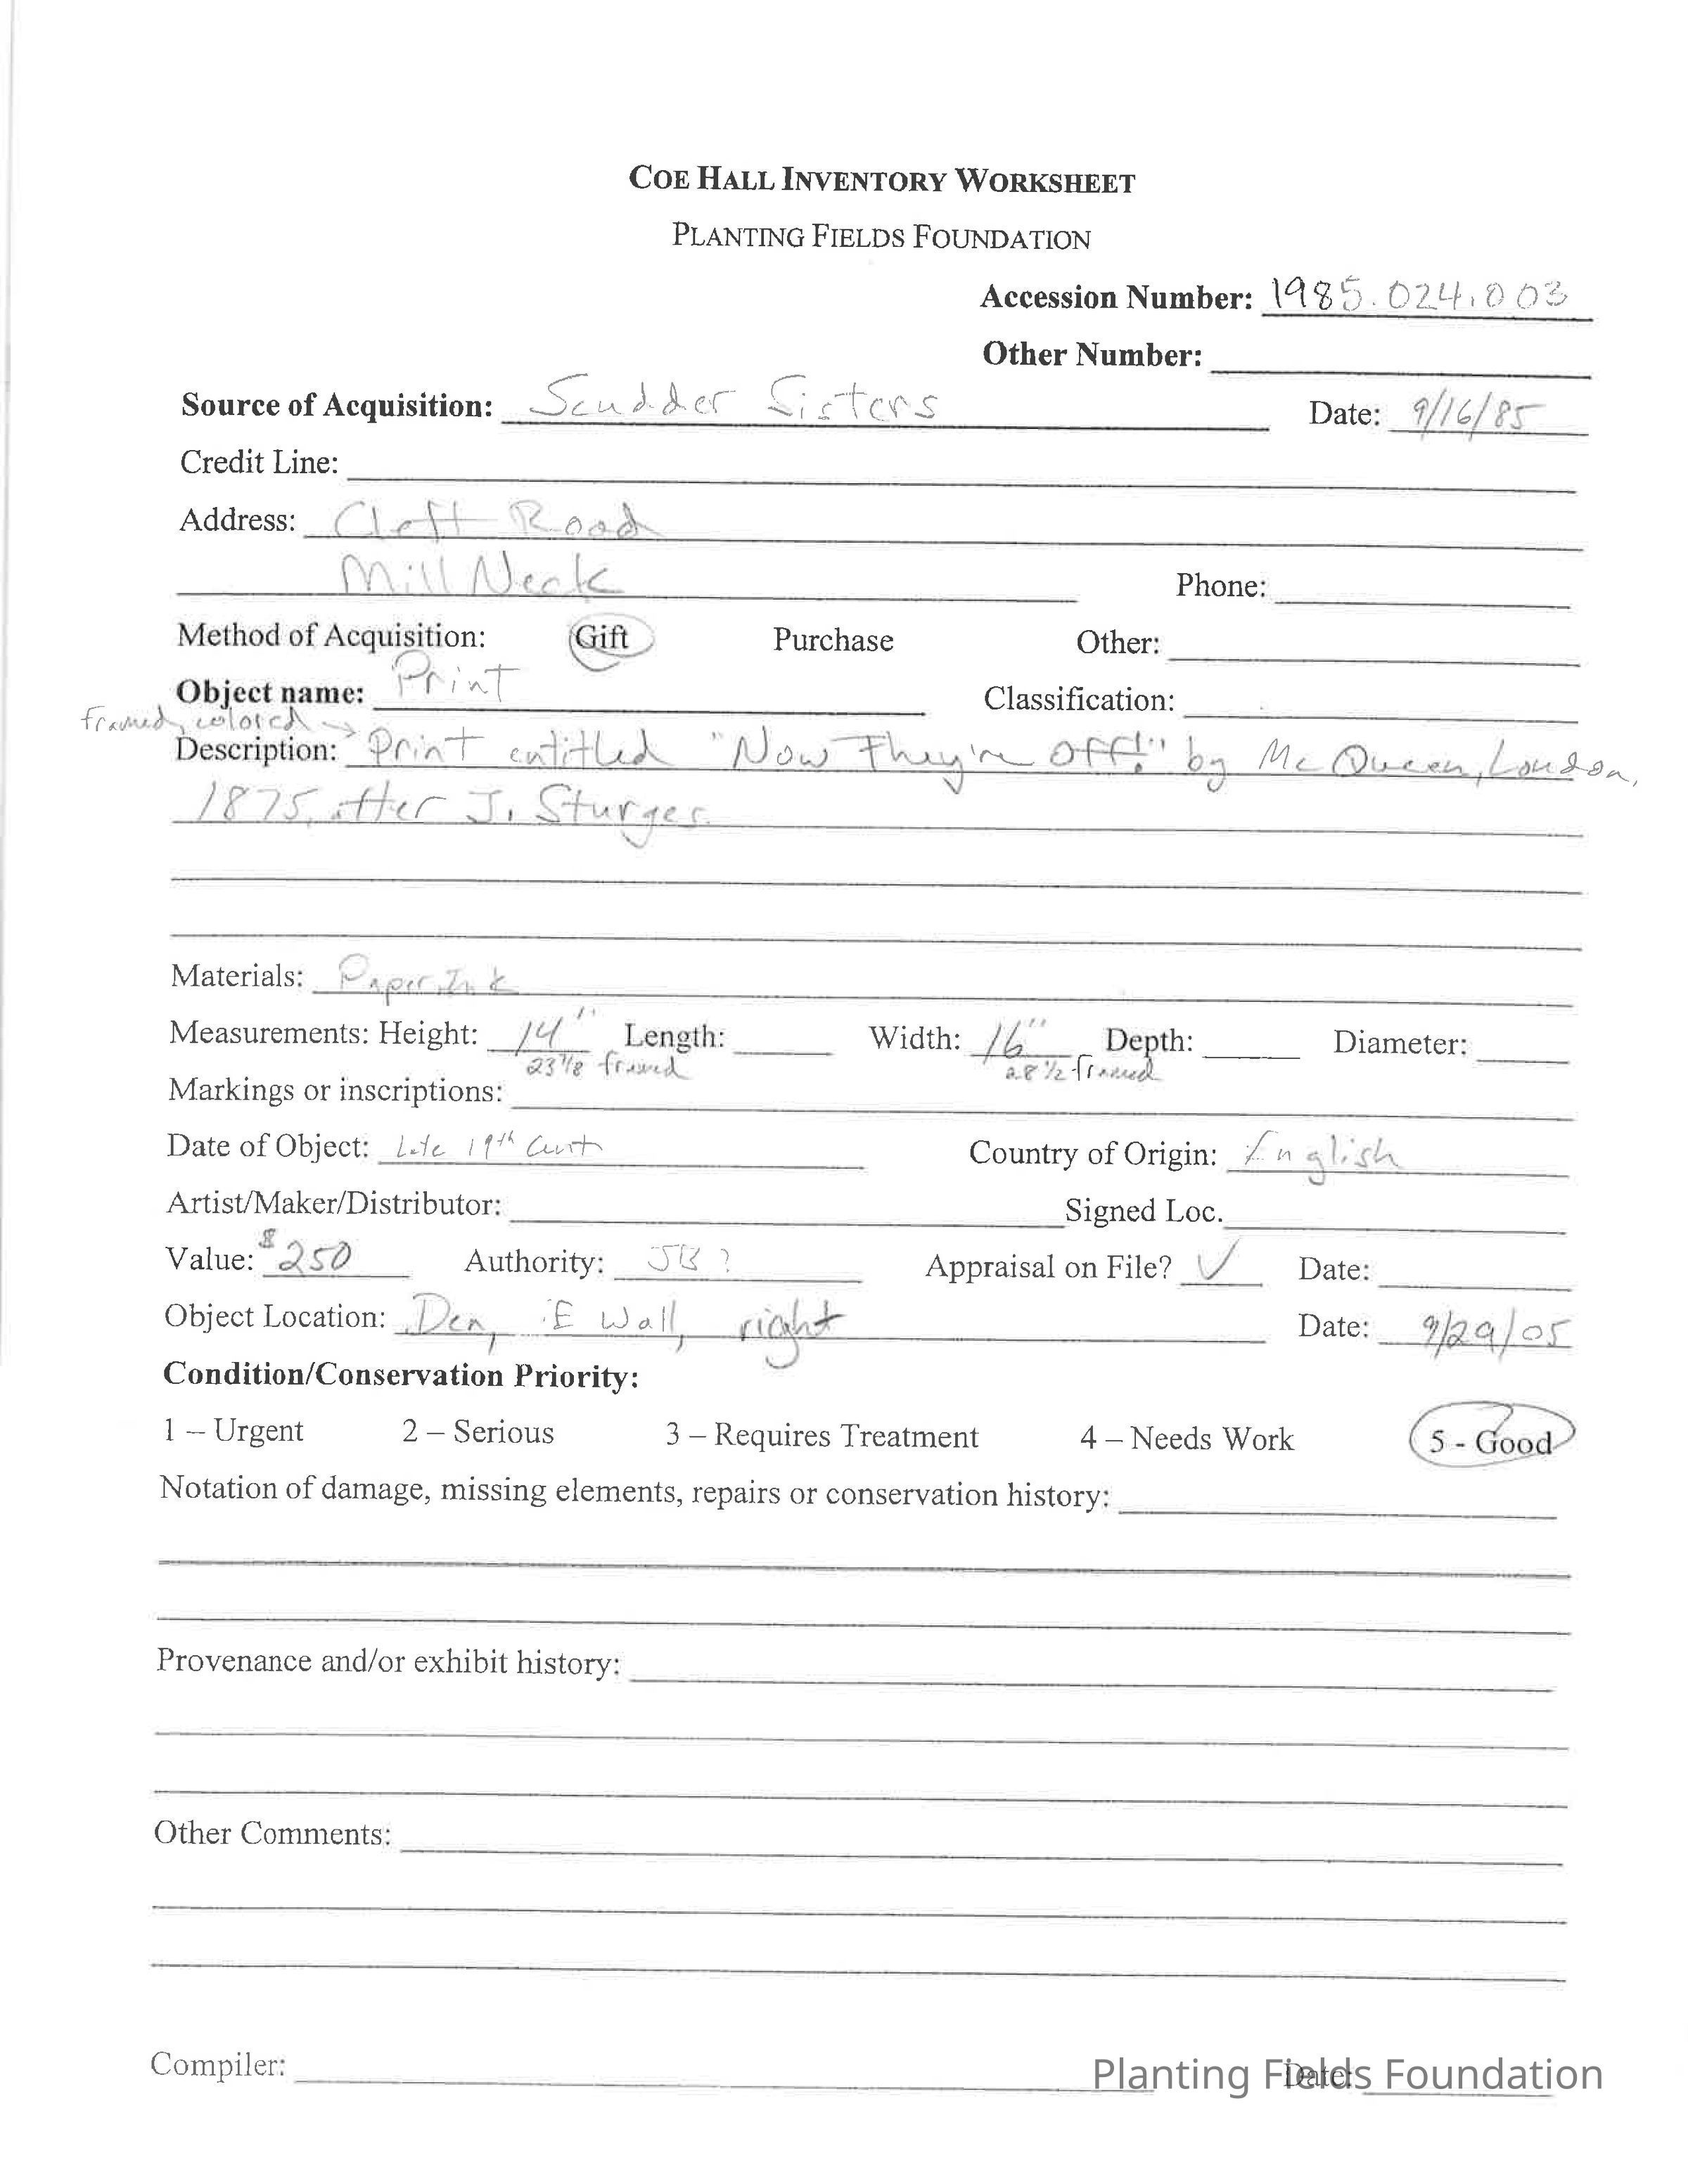 COE HALL INVENTORY WORKSHEET
PLANTING FIELDS FOUNDATION
Accession Number: 1985.024.003
Other Number:
Source of Acquisition: Scudder Sisters Date: 9/16/85
Credit Line:
Address: Cleft Road
Mill Neck Phone:
Method of Acquisition: Gift Purchase Other:
Object name: Print Classification:
framed, colored →
Description: Print entitled "Now They're Off!" by McQueen, London,
1875, after J. Sturges.
Materials: Paper, Ink
Measurements: Height: 14" Length: Width: 16" Depth: Diameter:
framed 28 1/2 framed
Markings or inscriptions:
Date of Object: Late 19th Cent Country of Origin: English
Artist/Maker/Distributor: Signed Loc.
Value: $250 Authority: JB? Appraisal on File? ✓ Date:
Object Location: Den, E Wall, right Date: 9/29/05
Condition/Conservation Priority:
1 – Urgent 2 – Serious 3 – Requires Treatment 4 – Needs Work 5 - Good
Notation of damage, missing elements, repairs or conservation history:
Provenance and/or exhibit history:
Other Comments:
Compiler: Date:
Planting Fields Foundation